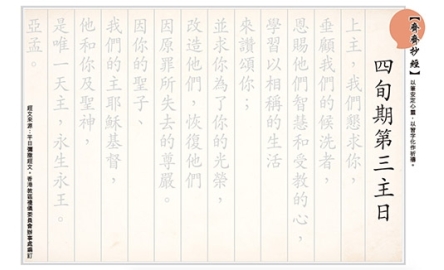 【齊齊抄經】
以筆安定心靈，以習字化作祈禱。
四旬期第三主日
上主，我們懇求你，
垂顧我們的候洗者，
恩賜他們智慧和受教的心，
學習以相稱的生活
來讚頌你；
並求你為了你的光榮，
改造他們，恢復他們
因原罪所失去的尊嚴。
因你的聖子、
我們的主耶穌基督，
他和你及聖神，
是唯一天主，永生永王。
亞孟。
經文來源：平日彌撒經文。香港教區禮儀委員會辦事處編訂